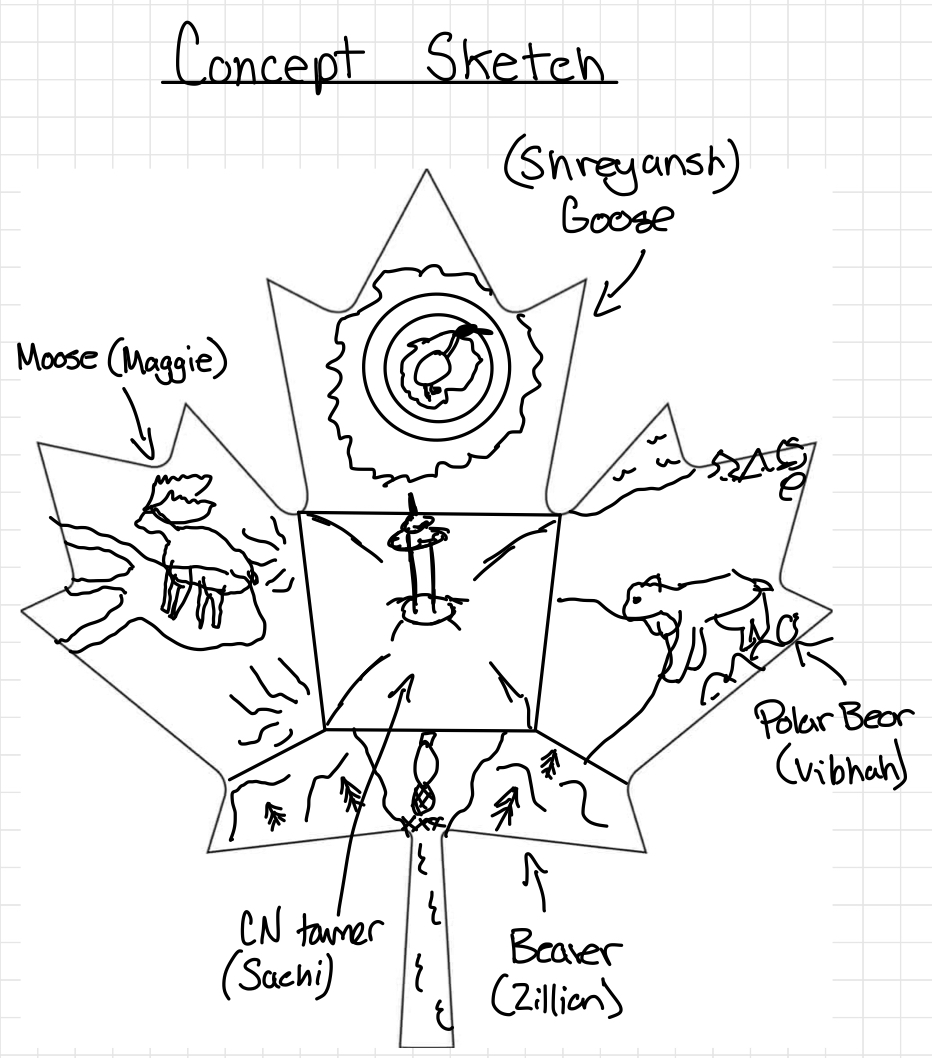 Concept Sketch
(Shreyansh)
Goose
Moose (Maggie)
Polar Bear
(Vibhah)
CN tower
(Sachi)
Beaver
(Zillian)